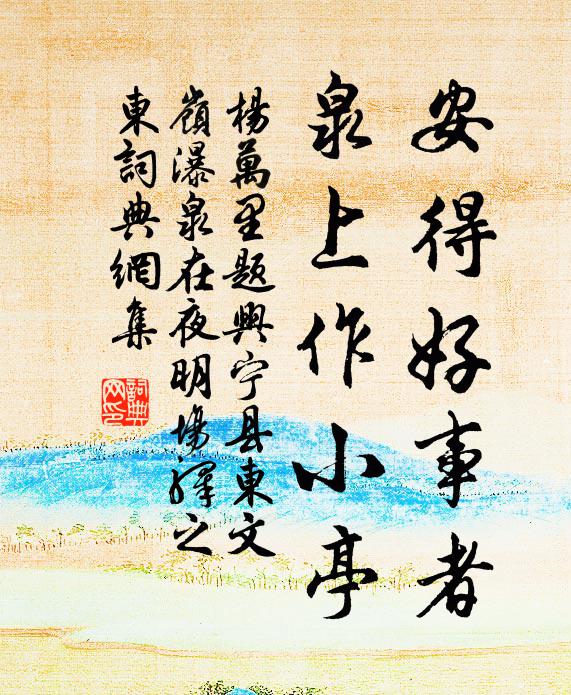 安得好事者
泉上作小亭
楊萬里題興宁县東文
嶺瀑泉在夜明場驛之
東詞典網集
詞典
网印